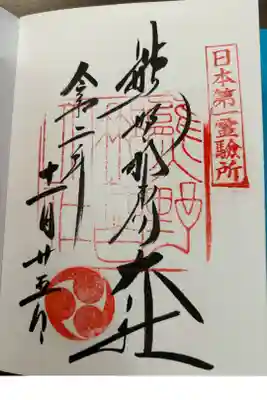 日本第一靈驗所
熊野那智大社
令和二年
十一月廿五日